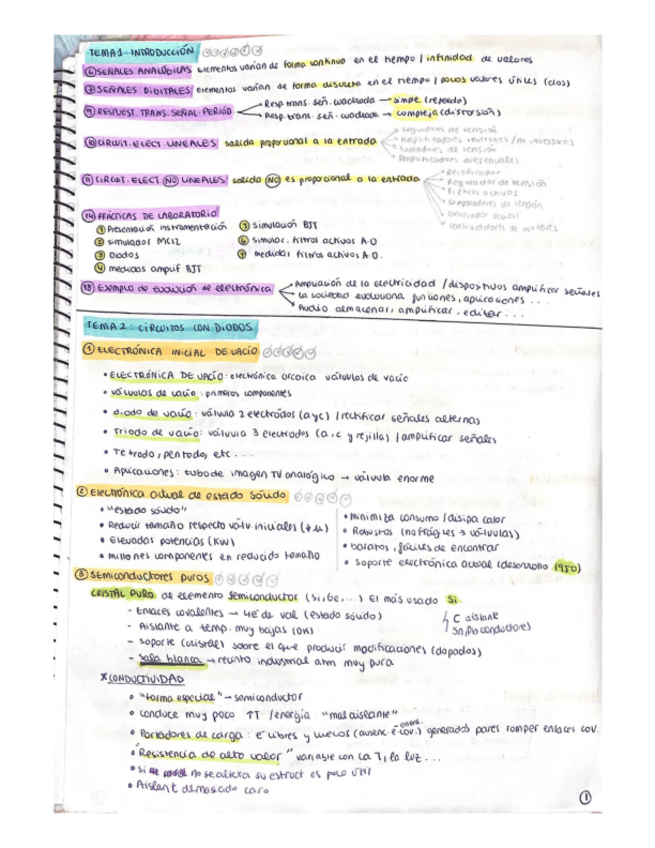 TEMA 1 INTRODUCCIÓN
⑥ SEÑALES ANALÓGICAS elementos varían de forma continua en el tiempo / infinidad de valores
⑦ SEÑALES DIGITALES elementos varían de forma discreta en el tiempo / pocos valores útiles (dos)
⑨ RESPUEST. TRANS. SEÑAL PERIÓD → Resp trans. señ. cuadrada → simple (retardo)
→ Resp. trans. señ. cuadrada → compleja (distorsión)
⑩ CIRCUIT. ELECT LINEALES salida proporcional a la entrada
seguidores de tensión
Amplificadores inversores / no inversores
Sumadores de tensión
Amplificadores diferenciales
⑪ CIRCUIT. ELECT NO LINEALES salida NO es proporcional a la entrada
Rectificador
Regulador de tensión
Filtros activos
Comparadores de tensión
⑭ PRÁCTICAS DE LABORATORIO
① Presentación instrumentación
② simulador MC12
③ Diodos
④ medidas amplif BJT
⑤ simulación BJT
⑥ simulac. filtros activos A.O
⑦ medidas filtros activos A.O.
⑱ Ejemplo de evolución de electrónica
Ampliación de la electricidad / dispositivos amplificar señales
la sociedad evoluciona funciones, aplicaciones ...
Audio almacenar, amplificar, editar...
TEMA 2: CIRCUITOS CON DIODOS
① ELECTRÓNICA INICIAL DE VACÍO
• ELECTRÓNICA DE VACÍO: electrónica arcaica válvulas de vacío
• válvulas de vacío: primeros componentes
• diodo de vacío: válvula 2 electrodos (a y c) / rectificar señales alternas
• Triodo de vacío: válvula 3 electrodos (a, c y rejilla) / amplificar señales
• Tetrodo, pentodo, etc...
• Aplicaciones: tubo de imagen TV analógico → válvula enorme
② Electrónica actual de estado sólido
• "estado sólido"
• Reducir tamaño respecto válv. iniciales (+μ)
• Elevadas potencias (KW)
• millones componentes en reducido tamaño
• minimiza consumo / disipa calor
• Robustas (no frágiles → válvulas)
• baratos, fáciles de encontrar
• soporte electrónica actual (desarrollo 1950)
③ Semiconductores puros
CRISTAL PURO de elemento semiconductor (Si, Ge,...) El más usado Si
- Enlaces covalentes → 4e⁻ de val (estado sólido)
- Aislante a temp. muy bajas (0K)
- soporte (cristal) sobre el que producir modificaciones (dopados)
- Sala blanca → recinto industrial atm muy pura
C aislante
Sn, Pb conductores
* CONDUCTIVIDAD
• "forma especial" → semiconductor
• conduce muy poco ↑T / energía "mal aislante"
• Portadores de carga: e⁻ libres y huecos (ausenc. e⁻ cov.) generados pares romper enlaces cov.
• "Resistencia de alto valor" variable con la T, la luz...
• Si no se altera su estruct es poco útil
• Aislant demasiado caro
①